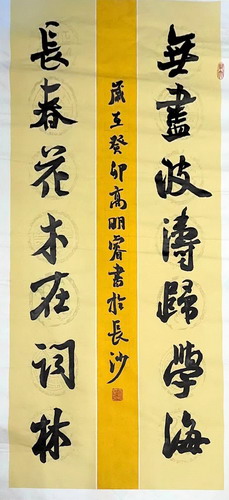 無盡波濤歸學海
歲在癸卯高明睿書於長沙
長春花木在詞林